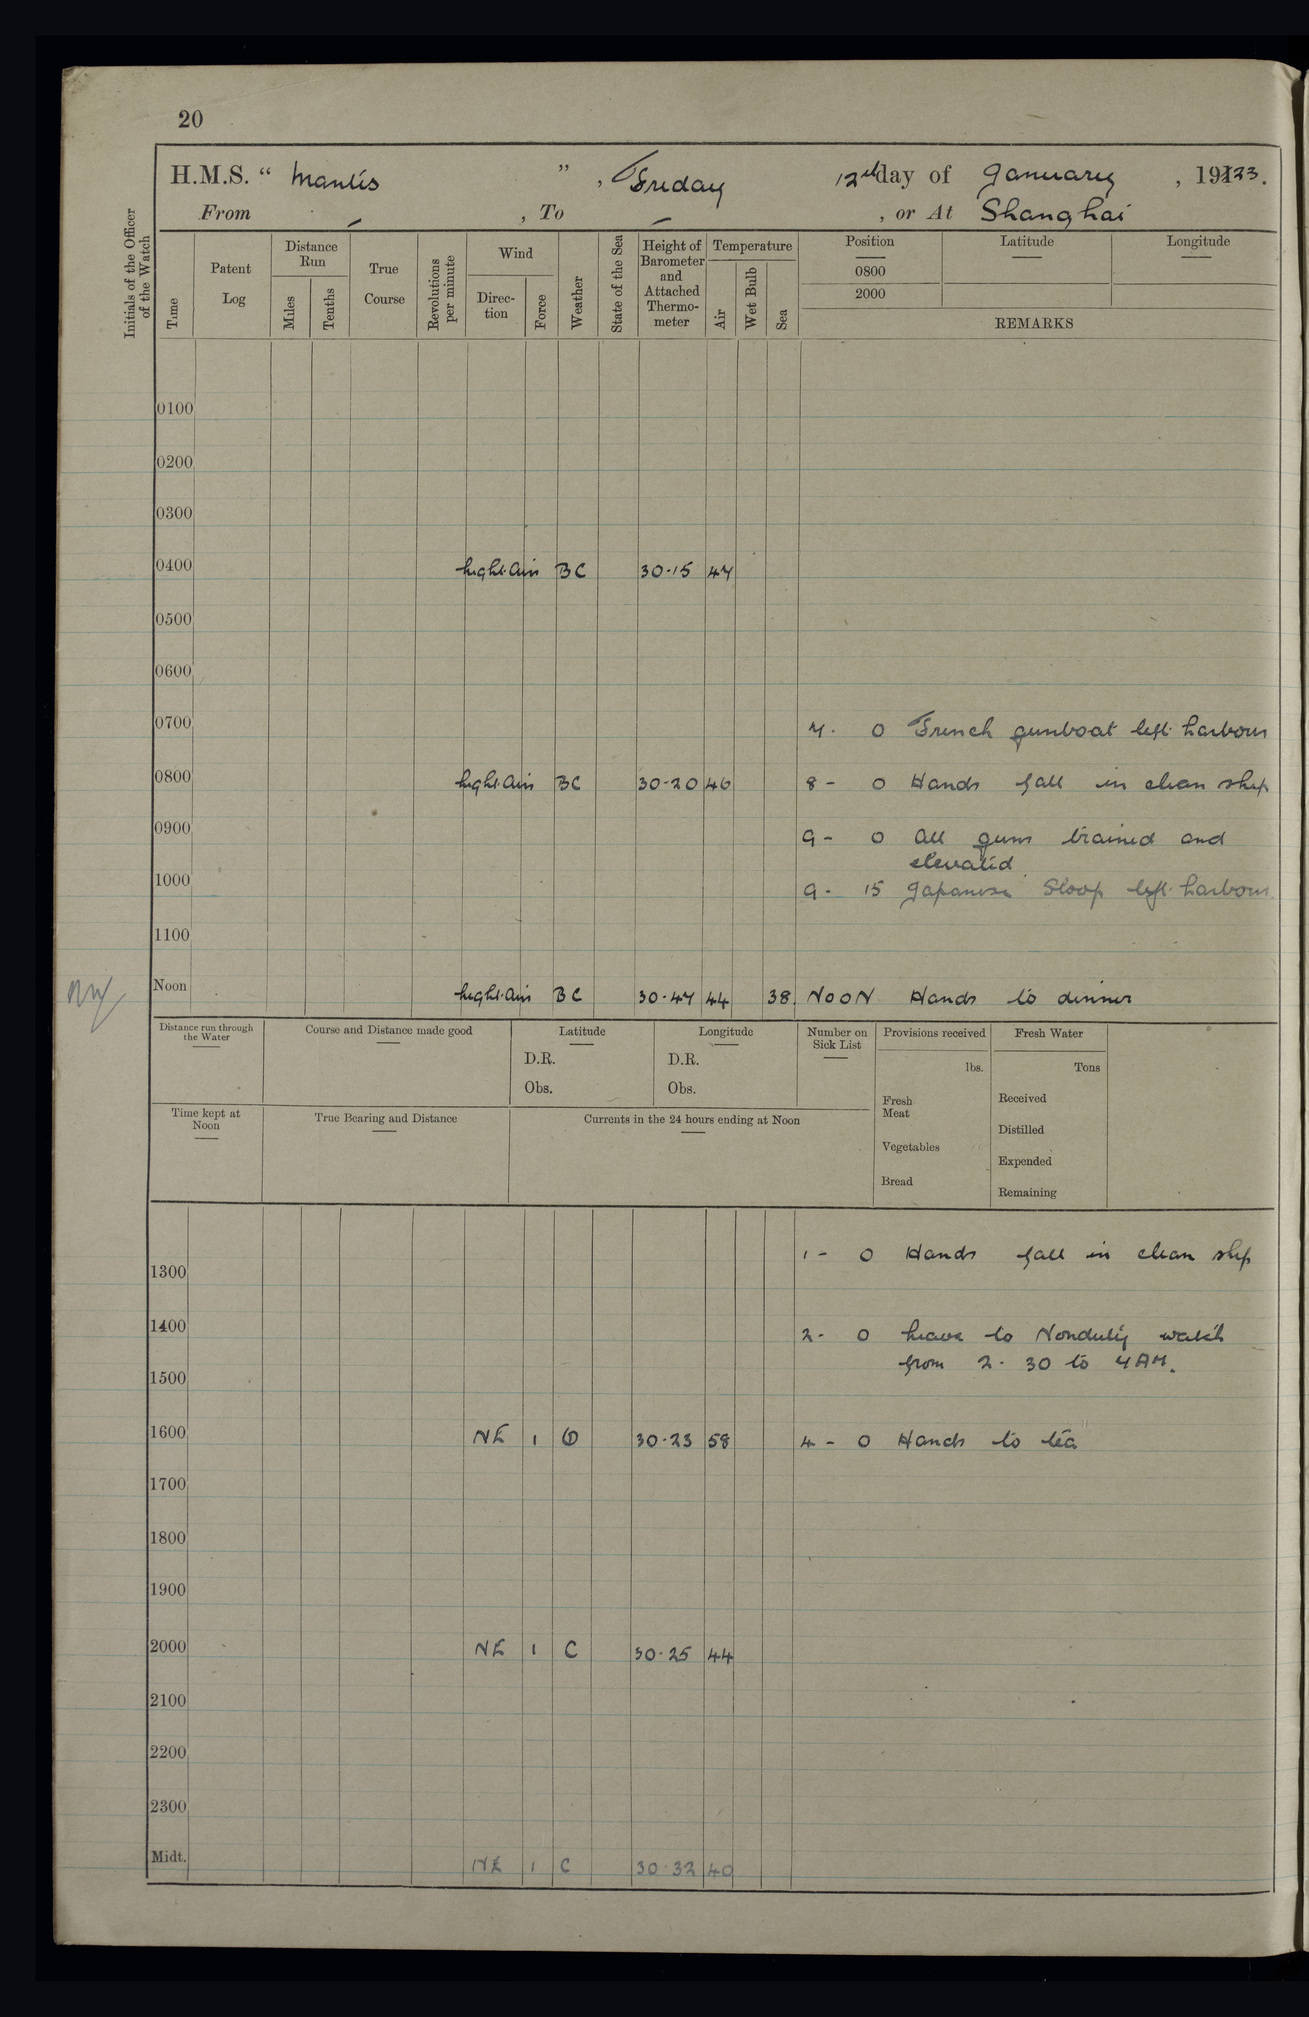 20
H.M.S. “ Mantis ” , Friday 12th day of January , 1923.
From – , To – , or At Shanghai
Initials of the Officer of the Watch
Time
Patent Log
Distance Run
Miles
Tenths
True Course
Revolutions per minute
Wind
Direc-tion
Force
Weather
State of the Sea
Height of Barometer and Attached Thermo-meter
Temperature
Air
Wet Bulb
Sea
Position
0800
2000
Latitude
Longitude
REMARKS
0100
0200
0300
0400 Light Airs BC 30·15 47
0500
0600
0700 7 · 0 French gunboat left harbour
0800 Light Airs BC 30·20 46 8 - 0 Hands fall in clean ship
0900 9 - 0 All guns trained and
elevated.
1000 9 - 15 Japanese Sloop left harbour
1100
Noon Light Airs BC 30·47 44 38. NOON Hands to dinner
Distance run through the Water
Course and Distance made good
Latitude
D.R.
Obs.
Longitude
D.R.
Obs.
Number on Sick List
Provisions received
lbs.
Fresh Meat
Vegetables
Bread
Fresh Water
Tons
Received
Distilled
Expended
Remaining
Time kept at Noon
True Bearing and Distance
Currents in the 24 hours ending at Noon
1 - 0 Hands fall in clean ship
1300
1400 2 - 0 Leave to Nonduty watch
from 2 - 30 to 4 AM.
1500
1600 NE 1 O 30·23 58 4 - 0 Hands to tea
1700
1800
1900
2000 NE 1 C 30·25 44
2100
2200
2300
Midt. NE 1 C 30·32 40